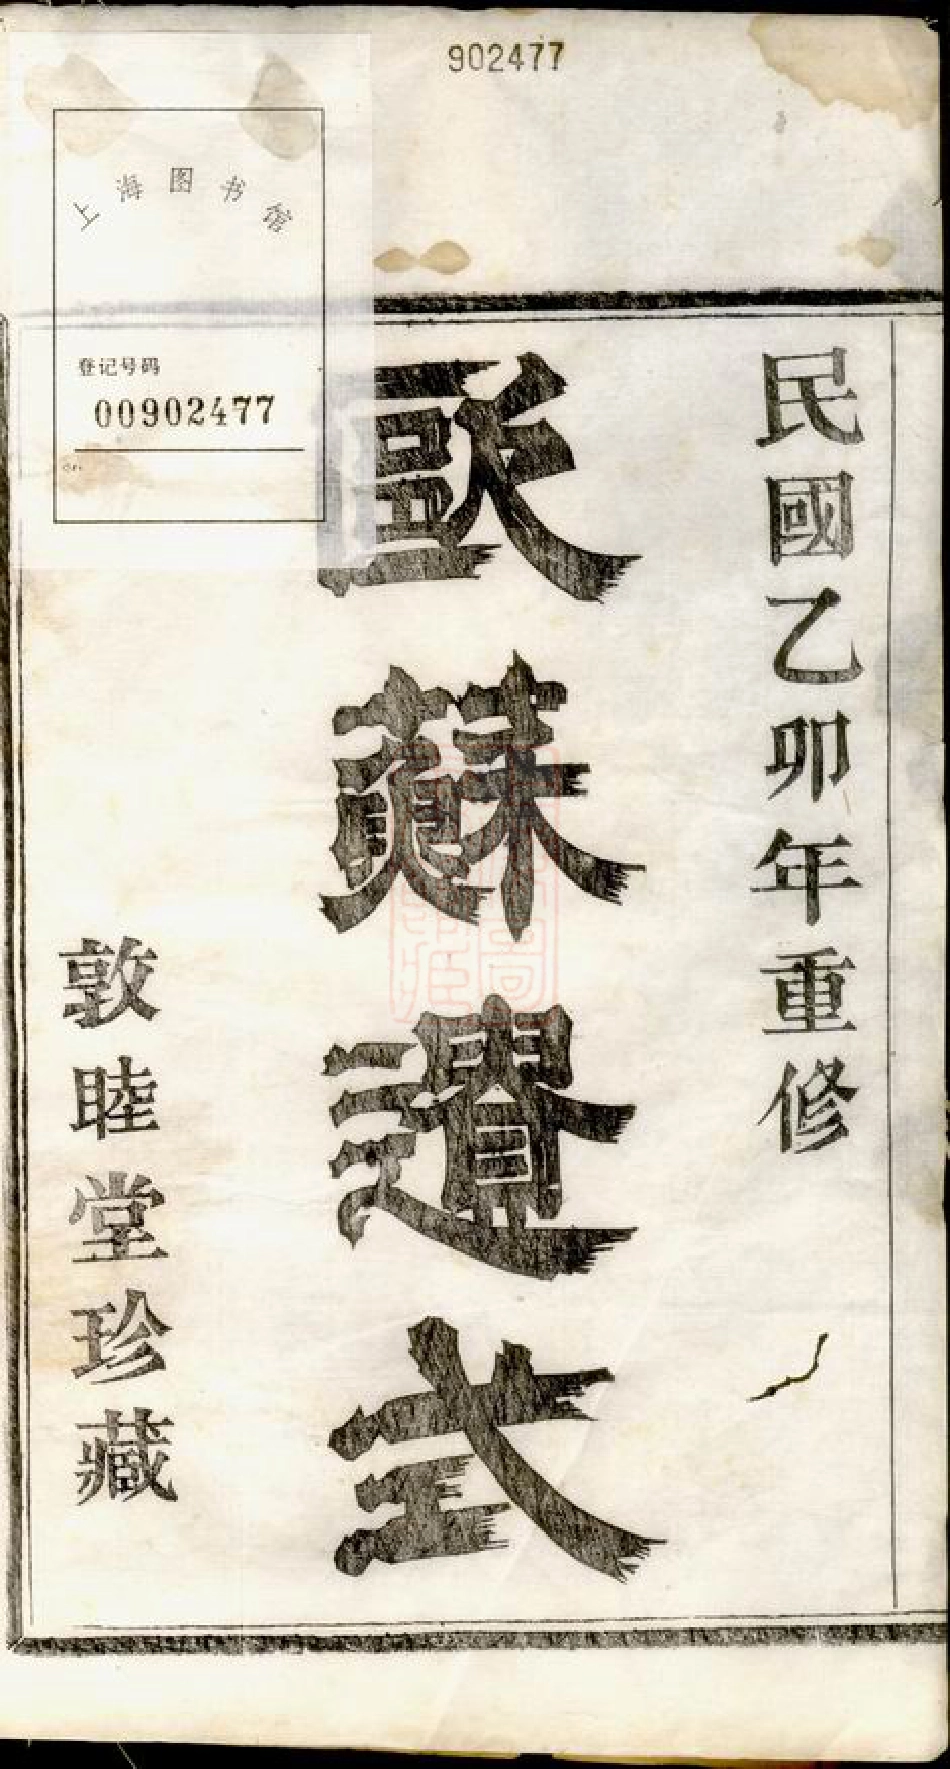 902477
上海图书馆
登记号码
00902477
民國乙卯年重修
歐蘇遺式
敦睦堂珍藏